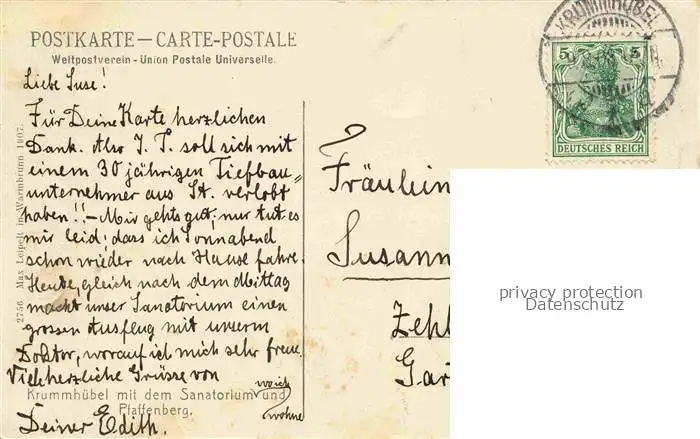 POSTKARTE — CARTE-POSTALE
Weltpostverein - Union Postale Universelle.
Liebe Suse!
Für Deine Karte herzlichen
Dank. Also I. T. soll sich mit
einem 30 jährigen Tiefbau=
unternehmer aus St. verlobt
haben!! – Mir gehts gut; nur tut es
mir leid; dass ich Sonnabend
schon wieder nach Hause fahre.
Heute, gleich nach dem Mittag
macht unser Sanatorium einen
grossen Ausflug mit unserm
Doktor, worauf ich mich sehr freue
Viele herzliche Grüsse von
Deiner Edith.
woich
wohne
Krummhübel mit dem Sanatorium und
Pfaffenberg.
2756 Max Leipelt in Warmbrunn 1907.
KRUMMHÜBEL
5 5
DEUTSCHES REICH
Fräulein
Susann
Zehl
Gar
privacy protection
Datenschutz